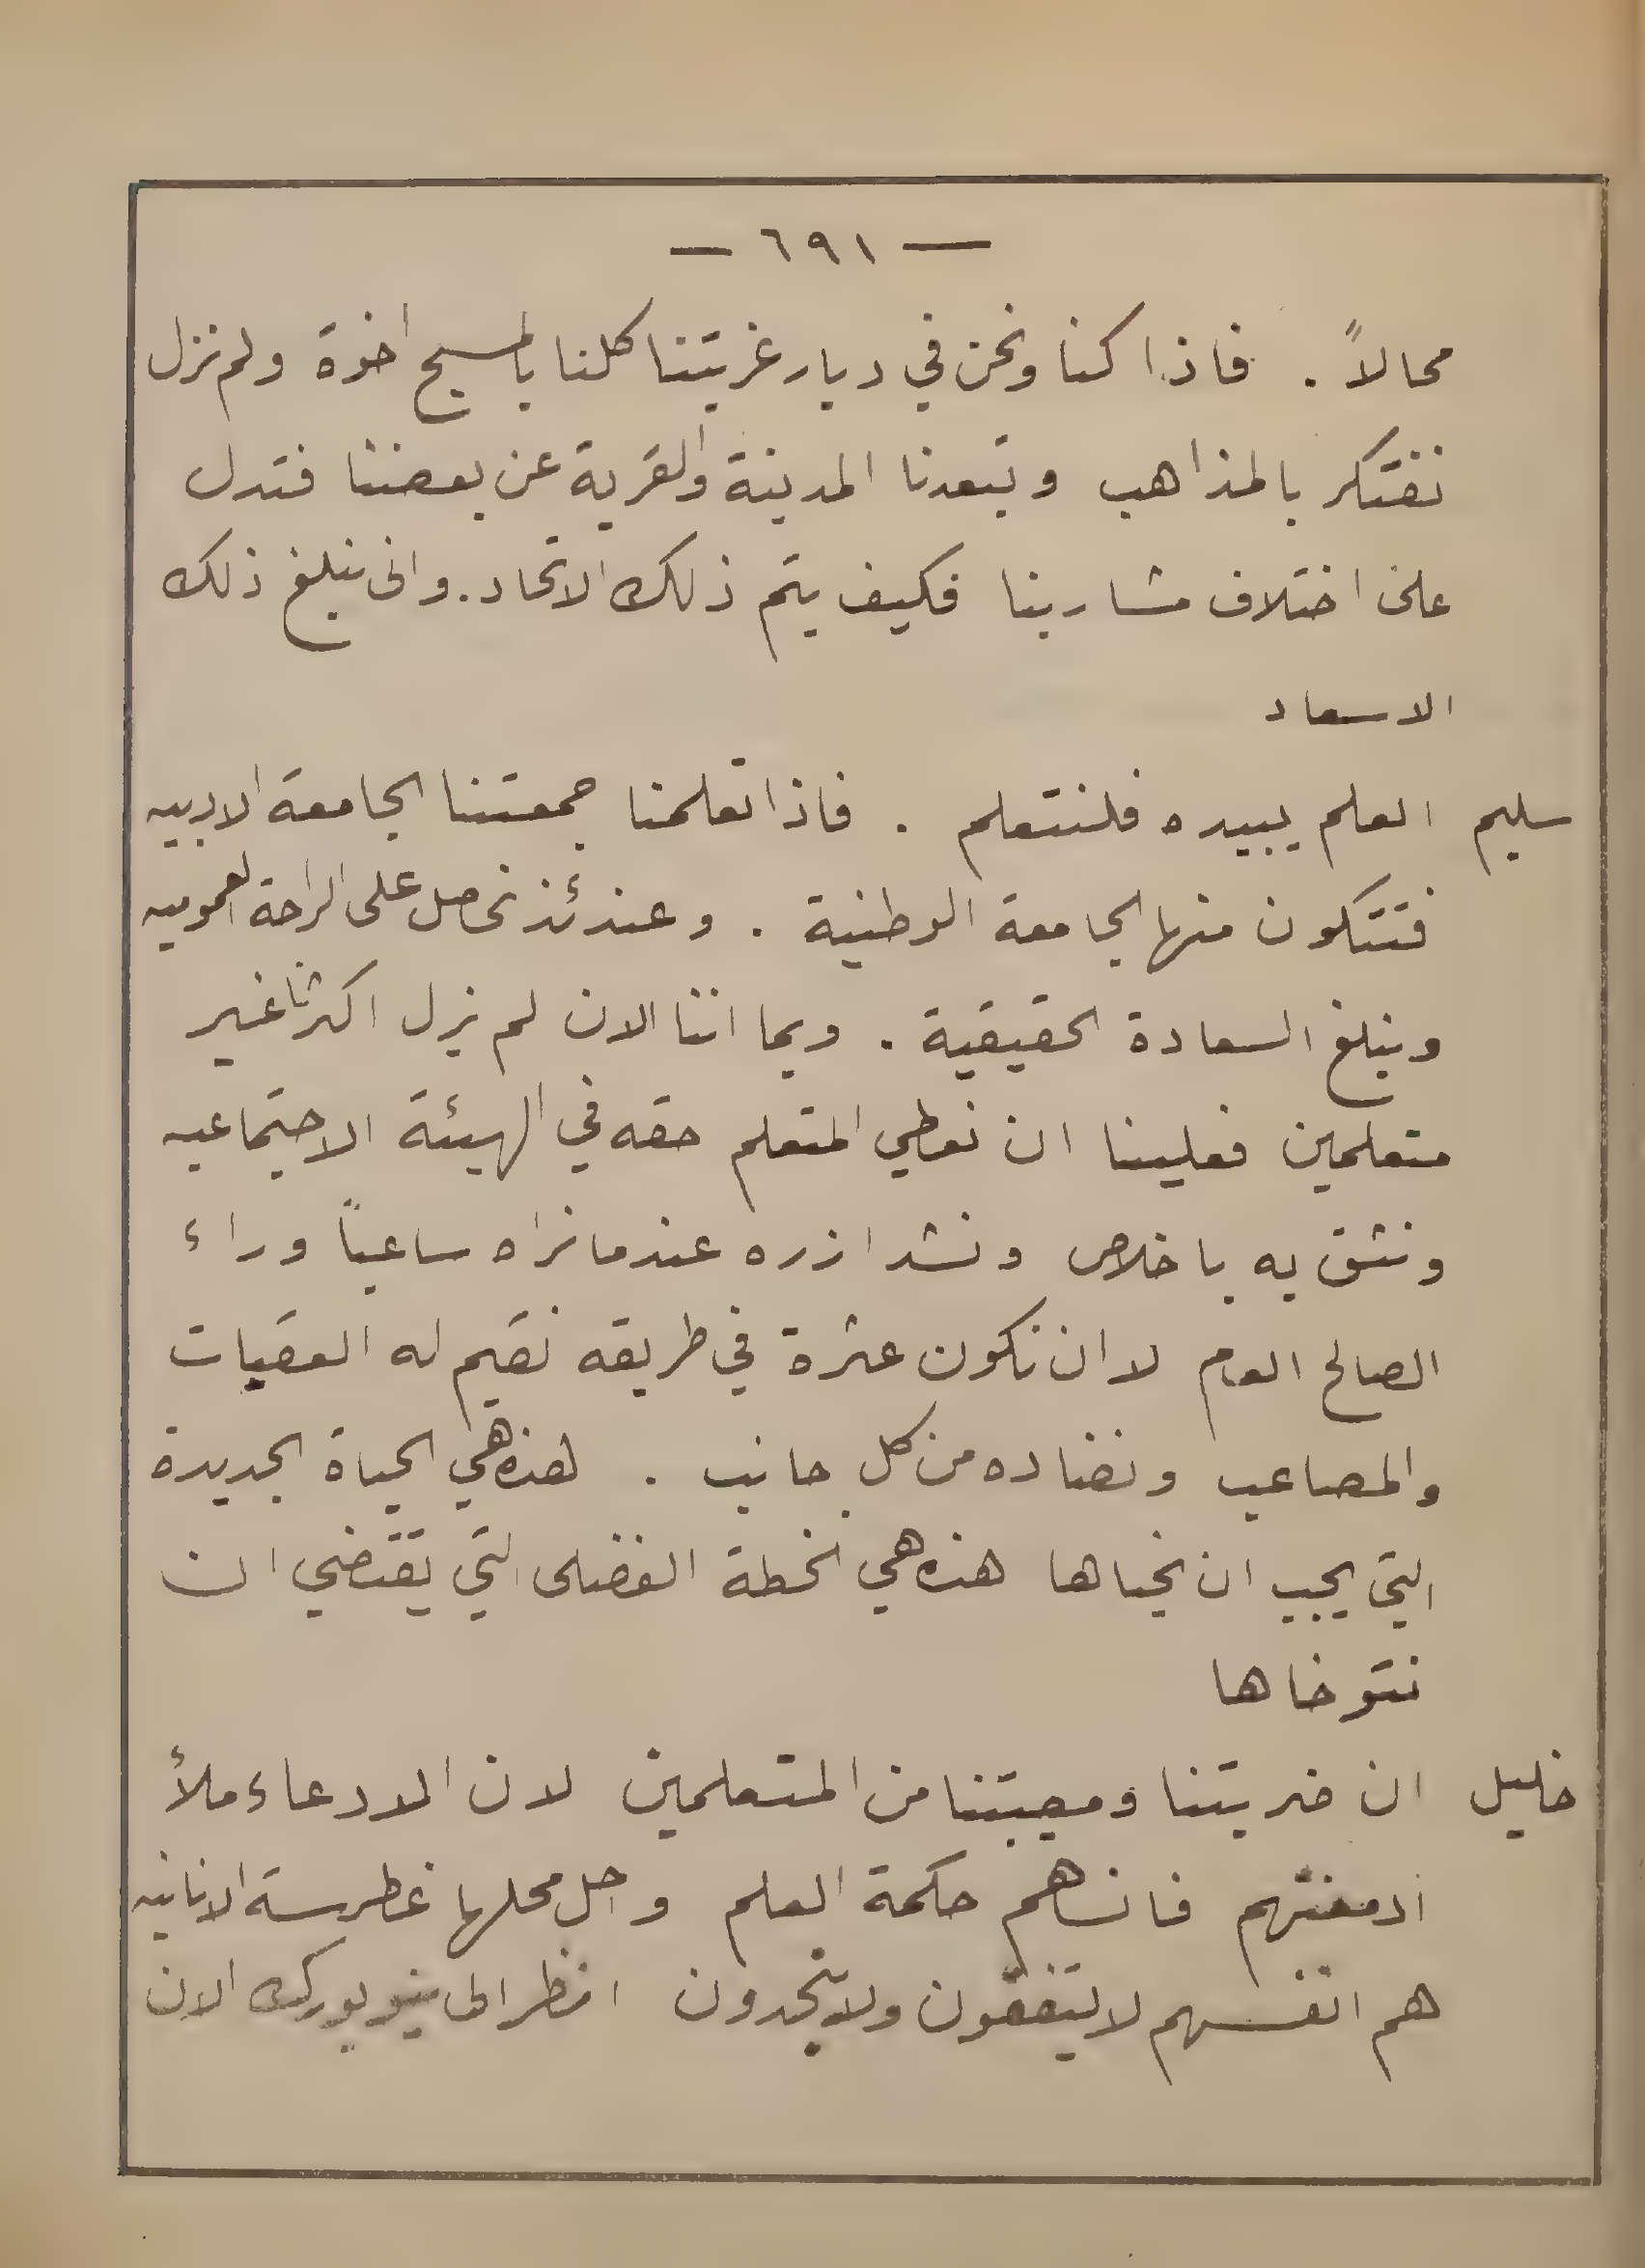 — ٦٩١ —
محالاً . فاذا كنا ونحن في ديار غربتنا كلنا بالمسيح اخوة ولم نزل
نفتكر بالمذاهب وتبعدنا المدينة والقرية عن بعضنا فتدل
على اختلاف مشاربنا فكيف يتم ذلك الاتحاد. وانى نبلغ ذلك
الاسعاد
سليم العلم يبيده فلنتعلم . فاذا تعلمنا جمعتنا الجامعة الادبيه
فتتكون منها الجامعة الوطنية . وعندئذ نحصل على الراحة العموميه
ونبلغ السعادة الحقيقية . وبما اننا الان لم يزل اكثرنا غير
متعلمين فعلينا ان نعطي المتعلم حقه في الهيئة الاجتماعيه
ونثق به باخلاص ونشد ازره عندما نراه ساعياً وراء
الصالح العام لا ان نكون عثرة في طريقه نقيم له العقبات
والمصاعب ونضاده من كل جانب . هذه هي الحياة الجديدة
التي يجب ان نحياها هذه هي الخطة الفضلى التي يقتضي ان
نتوخاها
خليل ان ضربتنا ومصيبتنا من المتعلمين لان الادعاء ملأ
ادمغتهم فانساهم حكمة العلم واحل محلها غطرسة الانانيه
هم انفسهم لا يتفقون ولا يتحدون انظر الى نيويورك الان